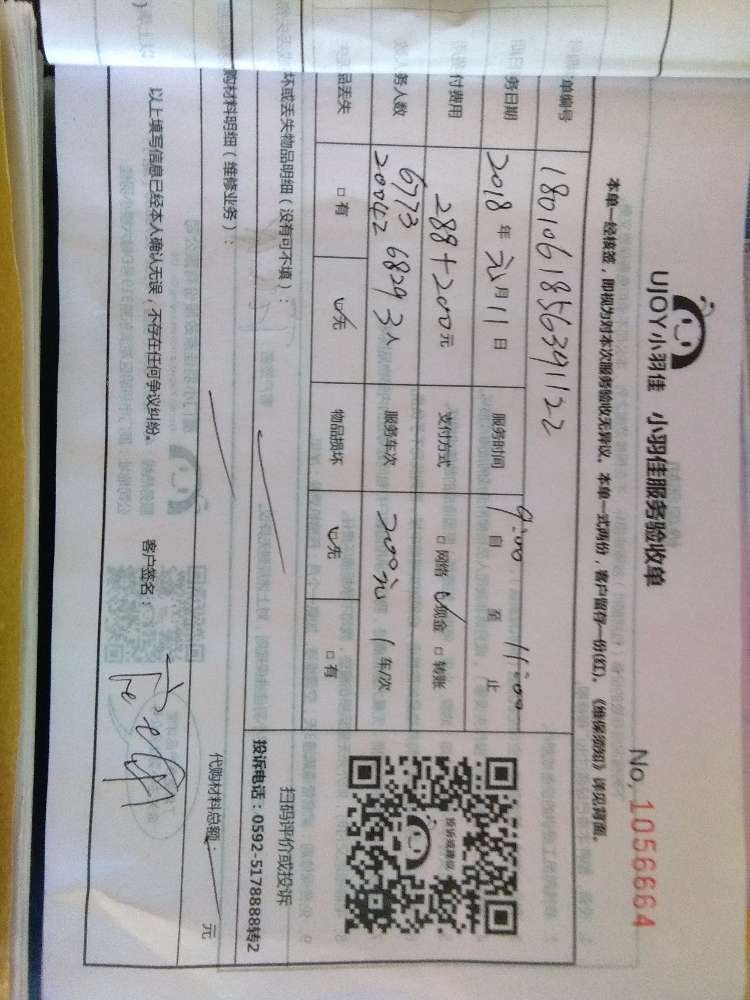 UJOY小羽佳 小羽佳服务验收单
No. 1056664
本单一经核签，即视为对本次服务验收无异议。本单一式两份，客户留存一份(红)。《维保须知》详见背面。
单编号 180106185639122
务日期 2018 年 元 月 11 日 服务时间 9:00 自 至 11:00 止
付费用 288+200 元 支付方式 □ 网络 ☑ 现金 □ 转账
务人数 6773 6829 20042 3 人 服务车次 200元 1 车/次
品丢失 □ 有 ☑ 无 物品损坏 ☑ 无 □ 有
投诉或建议
扫码评价或投诉
投诉电话：0592-5178888转2
坏或丢失物品明细（没有可不填）：
购材料明细（维修业务）：
代购材料总额： 元
以上填写信息已经本人确认无误，不存在任何争议纠纷。 客户签名：